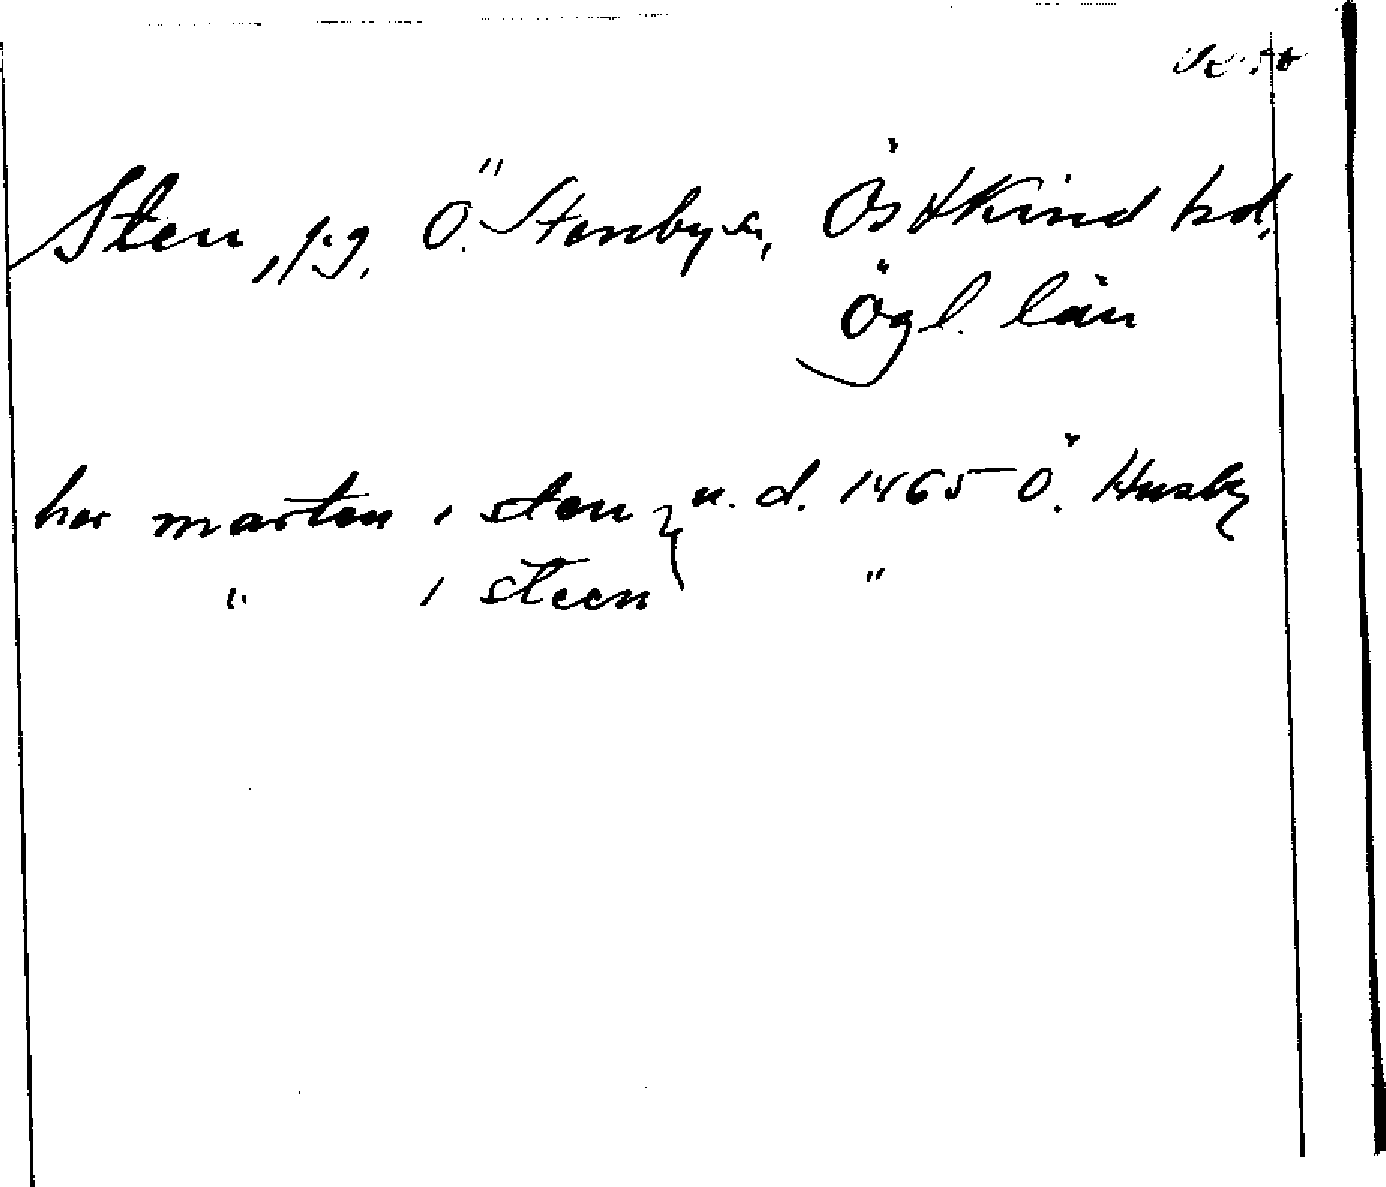 Sten, fg. Ö. Stenby sn, Östkind hd,
Ögl. län
her marten i sten } u. d. 1465 Ö. Husby
" i steen "